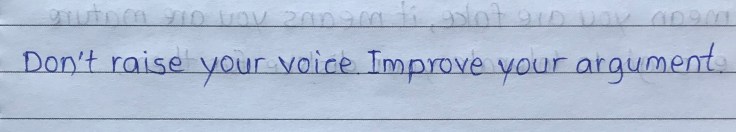 Don't raise your voice. Improve your argument.